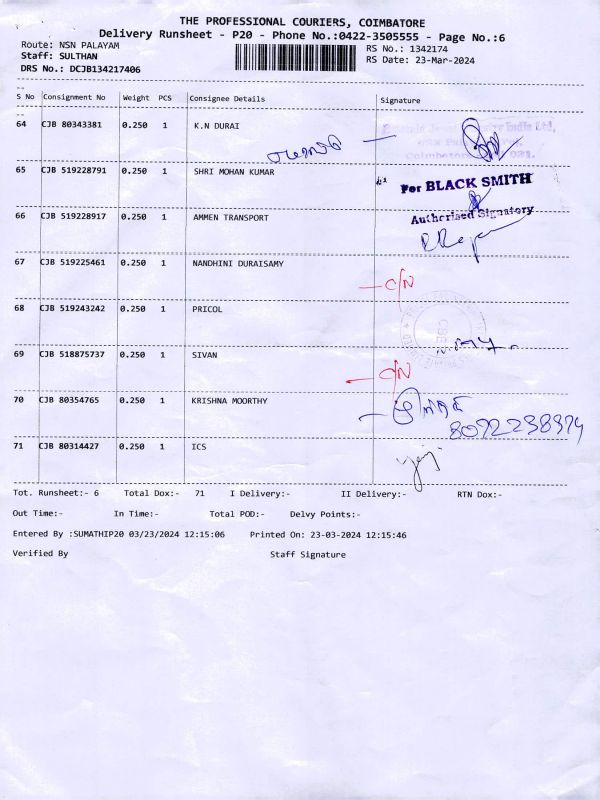 THE PROFESSIONAL COURIERS, COIMBATORE
Delivery Runsheet - P20 - Phone No.:0422-3505555 - Page No.:6
Route: NSN PALAYAM
RS No.: 1342174
Staff: SULTHAN
RS Date: 23-Mar-2024
DRS No.: DCJB134217406
S No Consignment No Weight PCS Consignee Details Signature
64 CJB 80343381 0.250 1 K.N DURAI
65 CJB 519228791 0.250 1 SHRI MOHAN KUMAR
For BLACK SMITH
Authorised Signatory
66 CJB 519228917 0.250 1 AMMEN TRANSPORT
67 CJB 519225461 0.250 1 NANDHINI DURAISAMY
68 CJB 519243242 0.250 1 PRICOL
69 CJB 518875737 0.250 1 SIVAN
70 CJB 80354765 0.250 1 KRISHNA MOORTHY
71 CJB 80314427 0.250 1 ICS
Tot. Runsheet:- 6 Total Dox:- 71 I Delivery:- II Delivery:- RTN Dox:-
Out Time:- In Time:- Total POD:- Delvy Points:-
Entered By :SUMATHIP20 03/23/2024 12:15:06 Printed On: 23-03-2024 12:15:46
Verified By Staff Signature